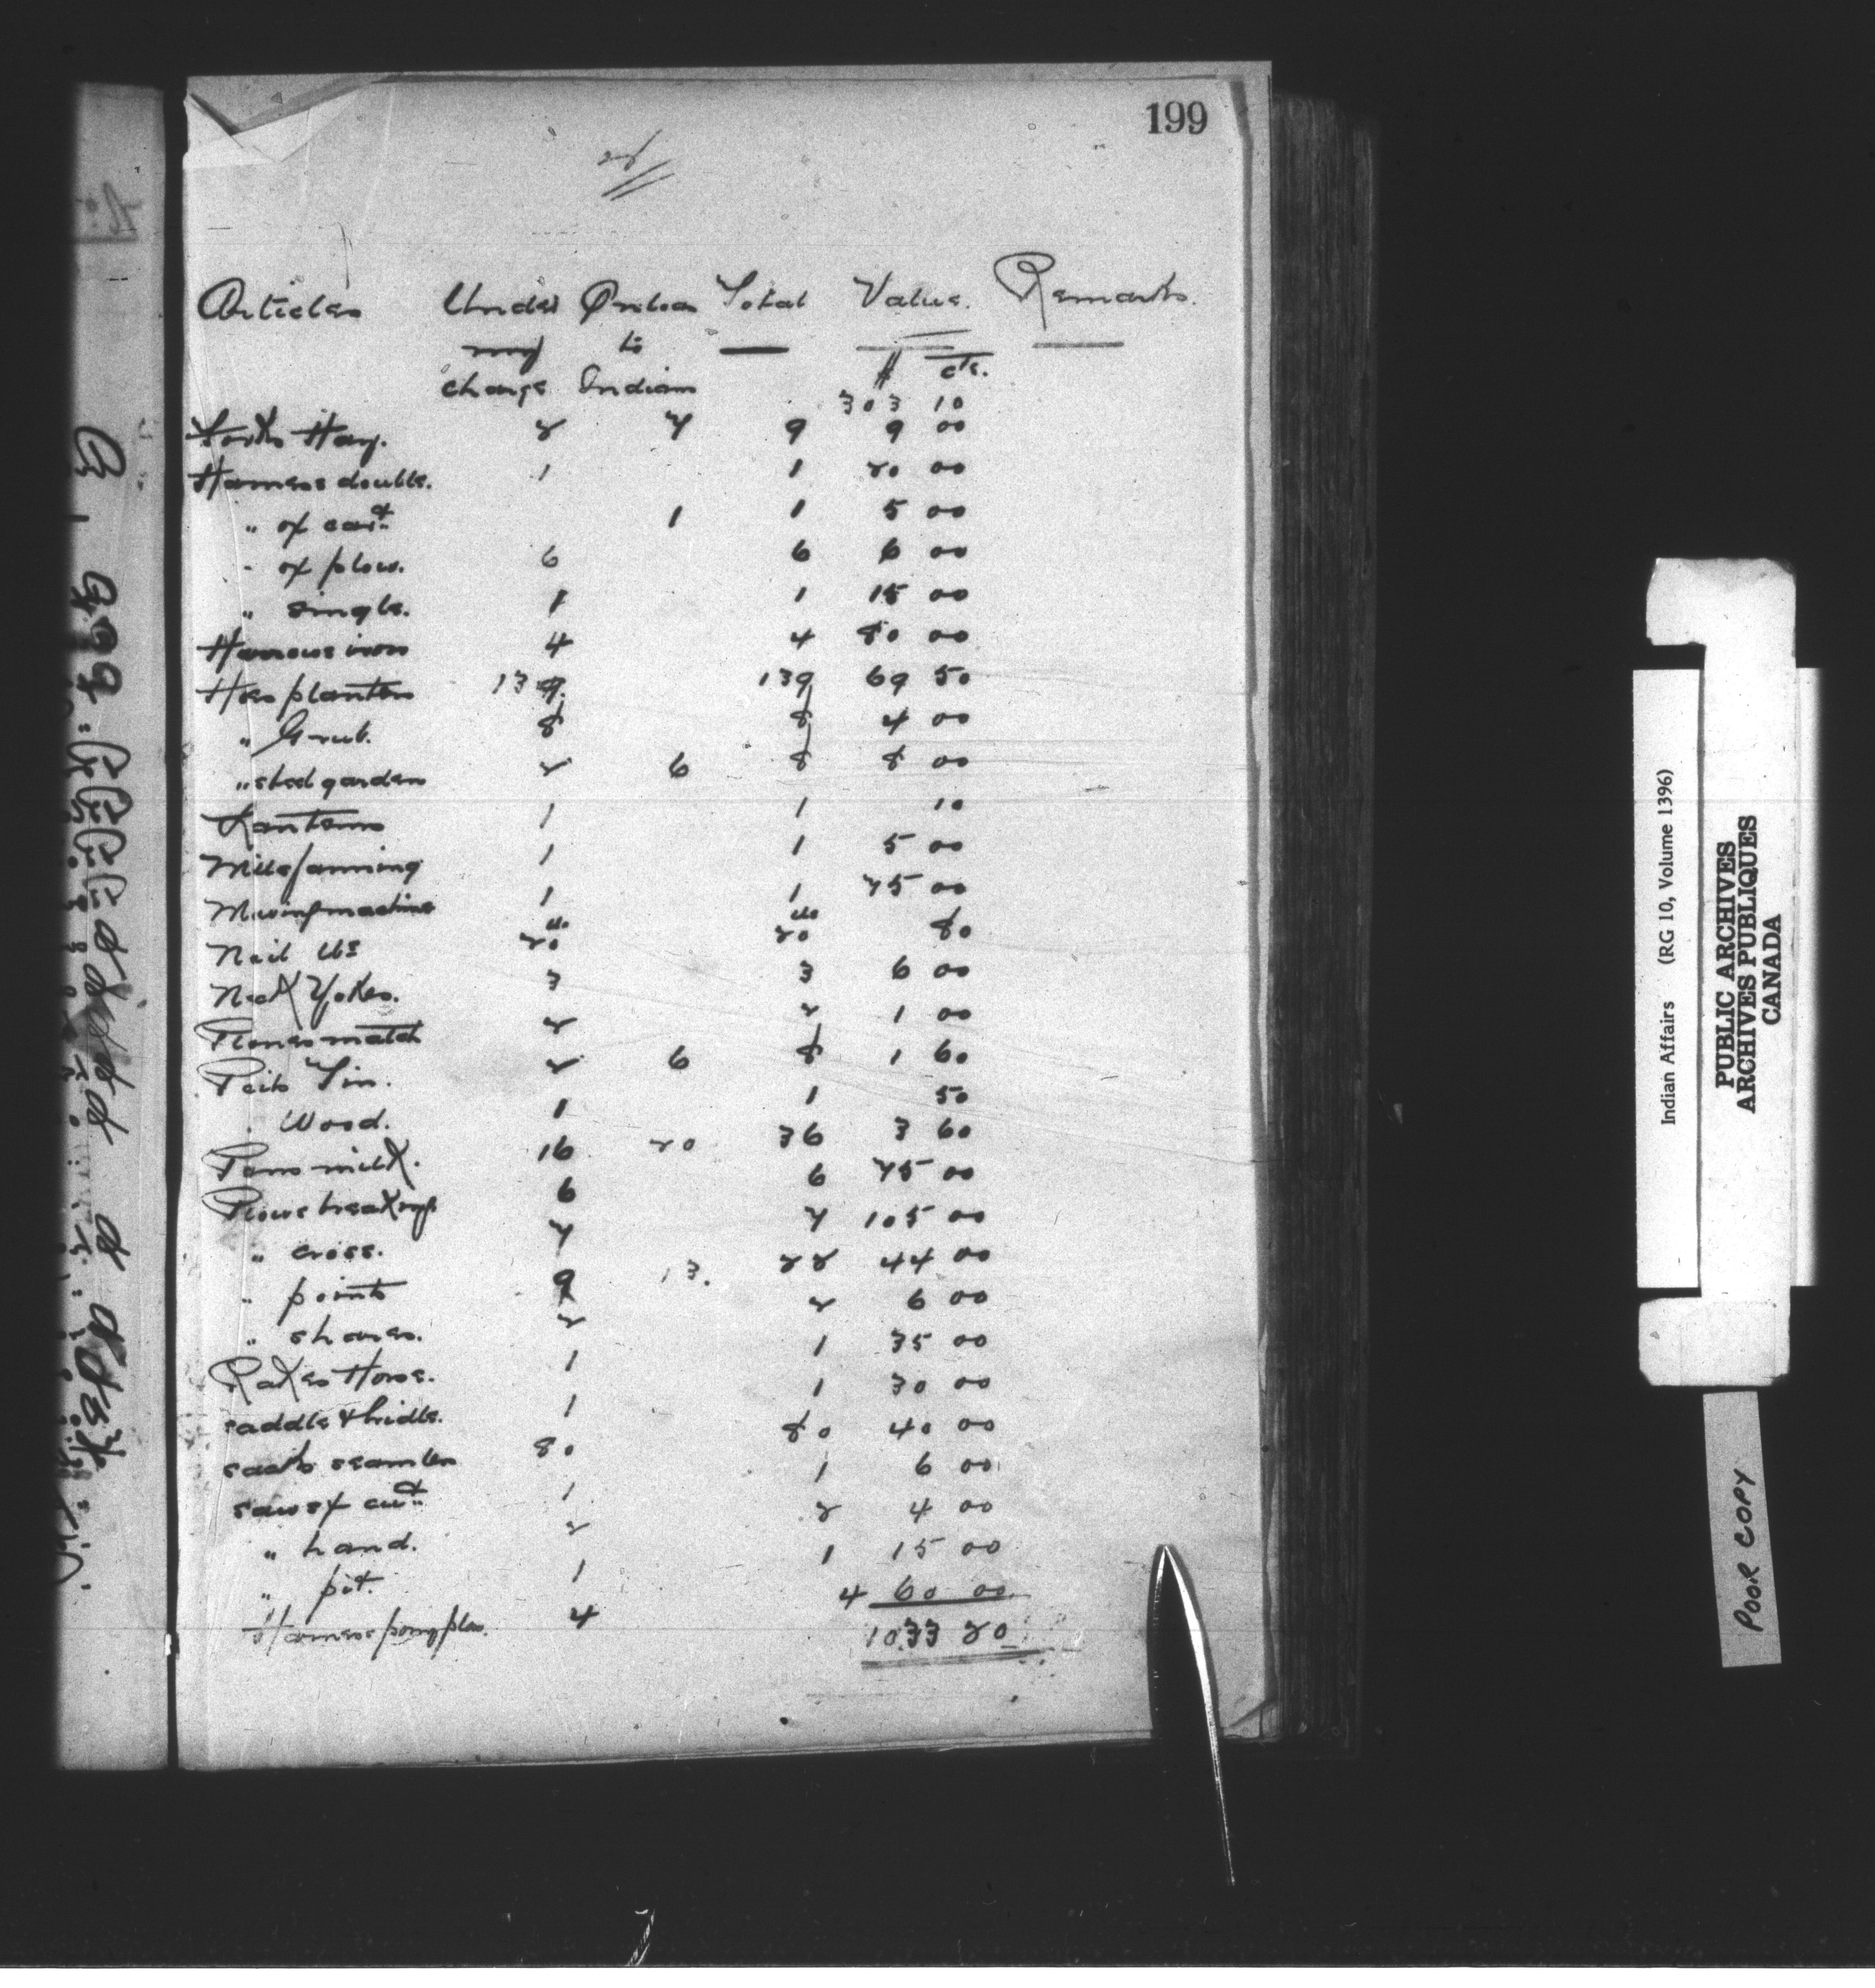 199
Articles Under On loan Total Value. Remarks.
my to
charge Indians $ cts.
303 10
Forks Hay. 2 7 9 9 00
Harness double. 1 1 20 00
" ox cart. 1 1 5 00
" ox plow. 6 6 6 00
" single. 1 1 15 00
Harrows iron 4 4 80 00
Hoes planters 139 139 69 50
" Grub. 8 8 4 00
" steel garden 2 6 8 8 00
Lanterns 1 1 10
Mills fanning 1 1 5 00
Mowing machine 1 1 75 00
Nail lbs 20 lbs 20 lbs 80
Neck Yokes. 3 3 6 00
Planes match 2 2 1 00
Pails Tin. 2 6 8 1 60
" Wood. 1 1 50
Pans milk. 16 20 36 3 60
Plows breaking 6 6 75 00
" cross. 7 7 105 00
" points 9 13. 22 44 00
" shares. 2 2 6 00
Rakes Horse. 1 1 35 00
saddle & bridle. 1 1 30 00
sacks seamless 80 80 40 00
saws x cut 1 1 6 00
" hand. 2 2 4 00
" pit. 1 1 15 00
Harness pony plow. 4 4 60 00
1033 20
Indian Affairs (RG 10, Volume 1396)
PUBLIC ARCHIVES
ARCHIVES PUBLIQUES
CANADA
POOR COPY